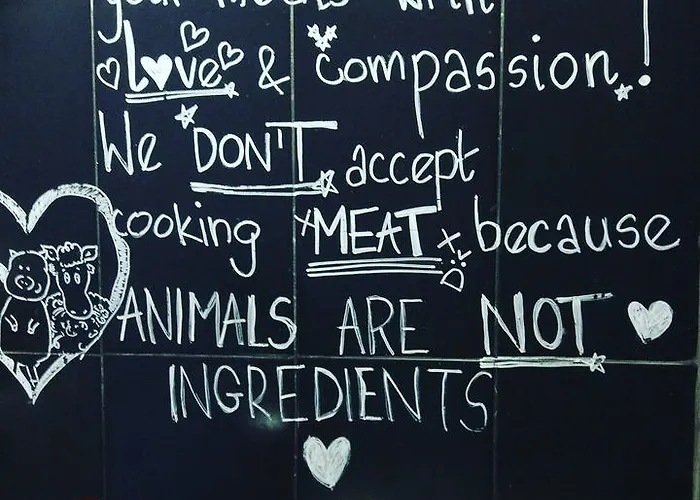 your meals with
love & compassion!
We DON'T accept
cooking MEAT because
ANIMALS ARE NOT
INGREDIENTS